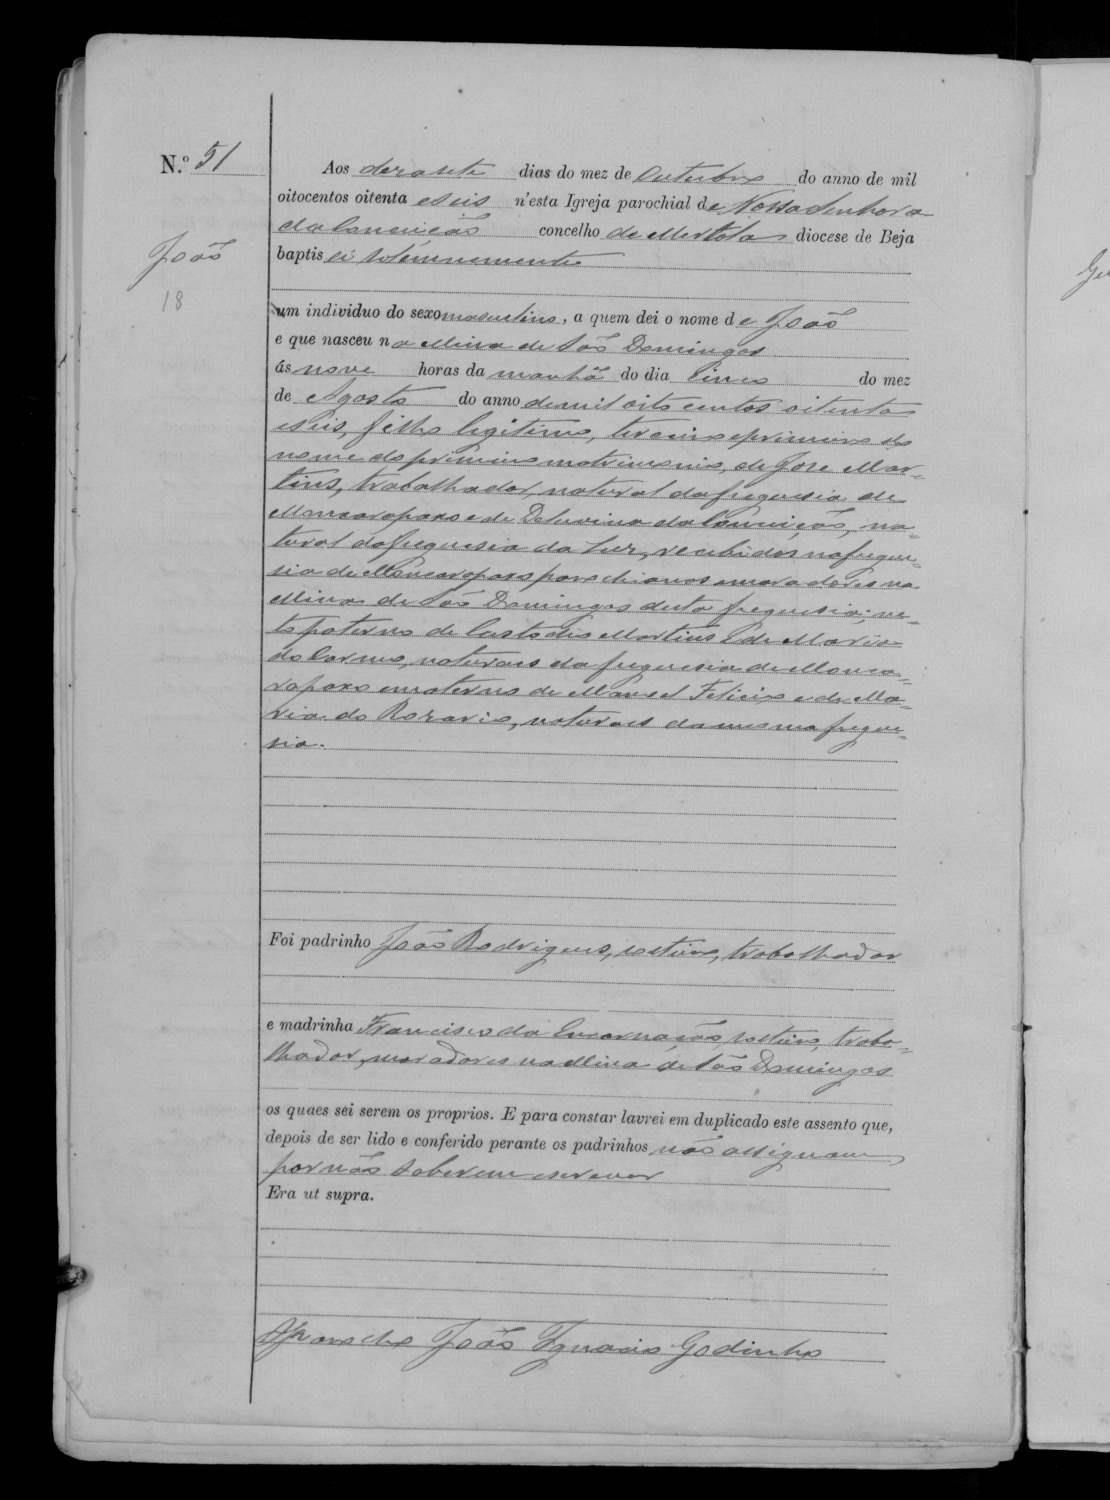 N.º 51
Aos dezasete dias do mez de Outubro do anno de mil
oitocentos oitenta e seis n'esta Igreja parochial de Nossa Senhora
da Conceição concelho de Mertola diocese de Beja
João
baptisei solemnemente
18
um individuo do sexo masculino, a quem dei o nome de João
e que nasceu na Mina de São Domingos
ás nove horas da manhã do dia cinco do mez
de Agosto do anno de mil oito centos oitenta
e seis, filho legitimo, terceiro e primeiro do
nome do primeiro matrimonio, de José Mar-
tins, trabalhador, natural da freguesia de
Moncarapaxo e de da Conceição, na-
tural da freguesia da Luz, recebidos na fregue-
sia de Moncarapaxo parochianos e moradores na
Mina de São Domingos desta freguesia; ne-
to paterno de Custodio Martins e de Maria
do Carmo, naturaes da freguesia de Monca-
rapaxo e materno de Manoel Felicio e de Ma-
ria do Rozario, naturaes da mesma fregue-
sia.
Foi padrinho João Rodrigues, solteiro, trabalhador
e madrinha Francisco da Encarnação, solteiro, traba-
lhador, moradores na Mina de São Domingos
os quaes sei serem os proprios. E para constar lavrei em duplicado este assento que,
depois de ser lido e conferido perante os padrinhos não assignam
por não saberem escrever
Era ut supra.
O Parocho João Ignacio Godinho